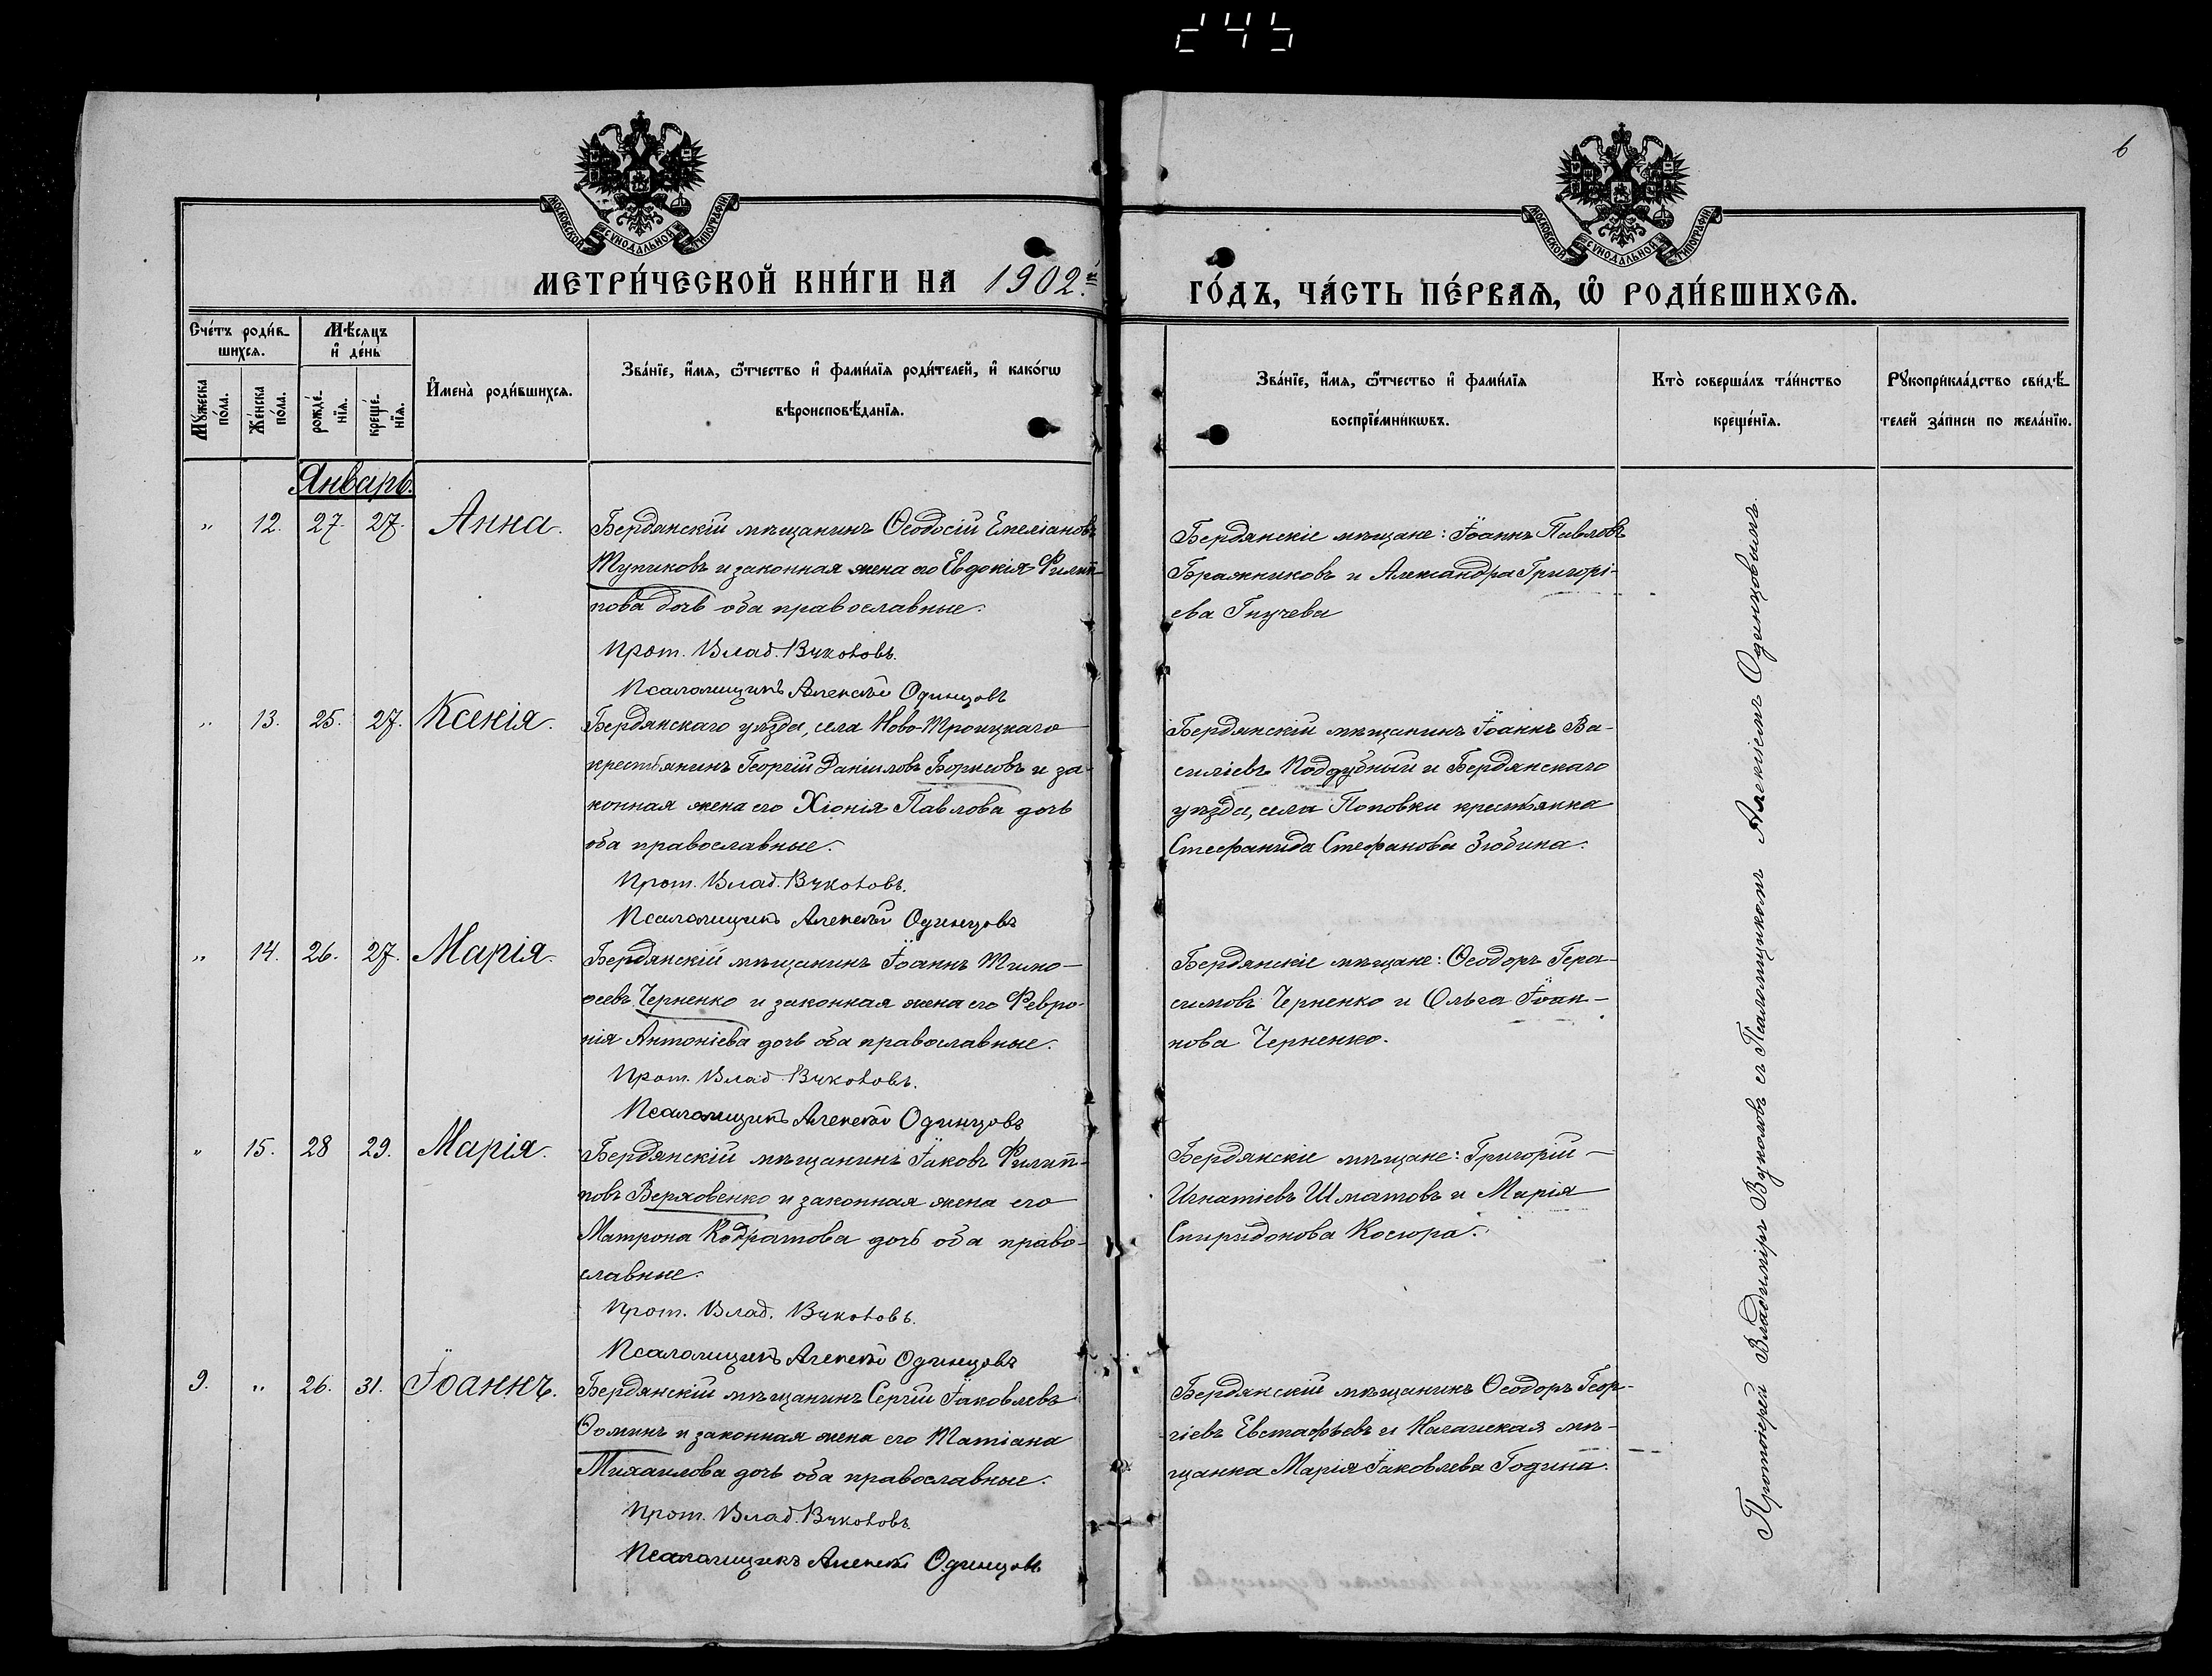 245
6
МОСКОВСКОЙ СѴНОДАЛЬНОЙ ТИПОГРАФІИ
МОСКОВСКОЙ СѴНОДАЛЬНОЙ ТИПОГРАФІИ
МЕТРИ́ЧЕСКОЙ КНИ́ГИ НА 1902й
ГО́ДЪ, ЧА́СТЬ ПЕ́РВАѦ, Ѡ҆ РОДИ́ВШИХСѦ.
Сче́тъ роди́в-
шихсѧ.
Мꙋ́жеска по́ла.
Же́нска по́ла.
Мѣ́сяцъ
и҆ де́нь
рожде́-
нїѧ.
креще́-
нїѧ.
И҆мена̀ роди́вшихсѧ.
Зва́нїе, и҆́мѧ, ѻ҆́тчество и҆ фами́лїѧ роди́телей, и҆ како́гѡ
вѣроисповѣ́данїѧ.
Зва́нїе, и҆́мѧ, ѻ҆́тчество и҆ фами́лїѧ
воспрїе́мникѡвъ.
Кто̀ соверша́лъ та́инство
креще́нїѧ.
Рꙋкоприкла́дство свидѣ́-
телей за́писи по жела́нїю.
Январь.
" 12. 27. 27. Анна.
Бердянскій мѣщанинъ Ѳеодосій Емеліановъ
Тупиковъ и законная жена его Евдокія Филип-
пова дочь оба православные.
Прот. Влад. Вуколовъ.
Псаломщикъ Алексѣй Одинцовъ
Бердянскіе мѣщане: Іоаннъ Павловъ
Бражниковъ и Александра Григорі-
ева
" 13. 25. 27. Ксенія.
Бердянскаго уѣзда, села Ново-Троицкаго
крестьянинъ Георгій Даніиловъ Борисовъ и за-
конная жена его Хіонія Павлова дочь
оба православные.
Прот. Влад. Вуколовъ.
Псаломщикъ Алексѣй Одинцовъ
Бердянскій мѣщанинъ Іоаннъ Ва-
силіевъ Поддубный и Бердянскаго
уѣзда, села Поповки крестьянка
Стефанида Стефанова Зюбина.
" 14. 26. 27. Марія.
Бердянскій мѣщанинъ Іоаннъ Тимо-
ѳеевъ Черненко и законная жена его Февро-
нія Антоніева дочь оба православные.
Прот. Влад. Вуколовъ.
Псаломщикъ Алексѣй Одинцовъ
Бердянскіе мѣщане: Ѳеодоръ Гера-
симовъ Черненко и Ольга Іоан-
нова Черненко.
" 15. 28 29. Марія.
Бердянскій мѣщанинъ Іаковъ Филип-
повъ Верховенко и законная жена его
Матрона Кодратова дочь оба право-
славные.
Прот. Влад. Вуколовъ.
Псаломщикъ Алексѣй Одинцовъ
Бердянскіе мѣщане: Григорій
Игнатіевъ Шматовъ и Марія
Спиридонова Косюра.
9. " 26. 31. Іоаннъ.
Бердянскій мѣщанинъ Сергій Іаковлевъ
Ѳоминъ и законная жена его Татіана
Михаилова дочь оба православные.
Прот. Влад. Вуколовъ.
Псаломщикъ Алексѣй Одинцовъ
Бердянскій мѣщанинъ Ѳеодоръ Геор-
гіевъ Евстафьевъ и Ногайская мѣ-
щанка Марія Іаковлева Година.
Протоіерей Владиміръ Вуколовъ съ Псаломщикомъ Алексіемъ Одинцовымъ.